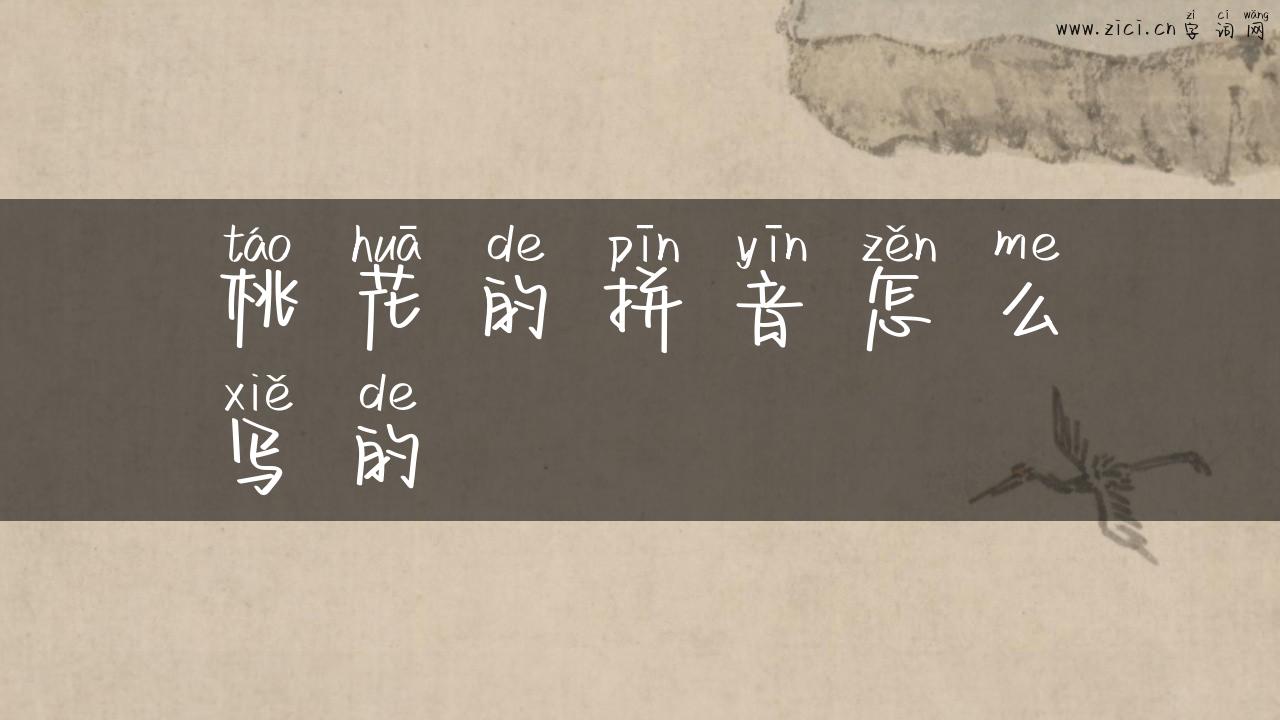 zì cí wǎng
www.zici.cn 字 词 网
táo huā de pīn yīn zěn me
桃 花 的 拼 音 怎 么
xiě de
写 的